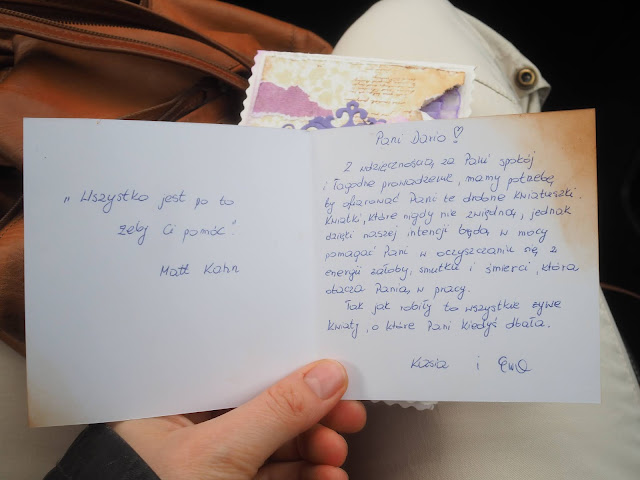 „Wszystko jest po to
żeby Ci pomóc".
Matt Kahn
Pani Dario ♡!
Z wdzięcznością za Pani spokój
i łagodne prowadzenie, mamy potrzebę
by ofiarować Pani te drobne kwiatuszki.
Kwiatki, które nigdy nie zwiędną, jednak
dzięki naszej intencji będą w mocy
pomagać Pani w oczyszczaniu się z
energii żałoby, smutku i śmierci, która
otacza Panią w pracy.
Tak jak robiły to wszystkie żywe
kwiaty, o które Pani kiedyś dbała.
Kasia i Ewa